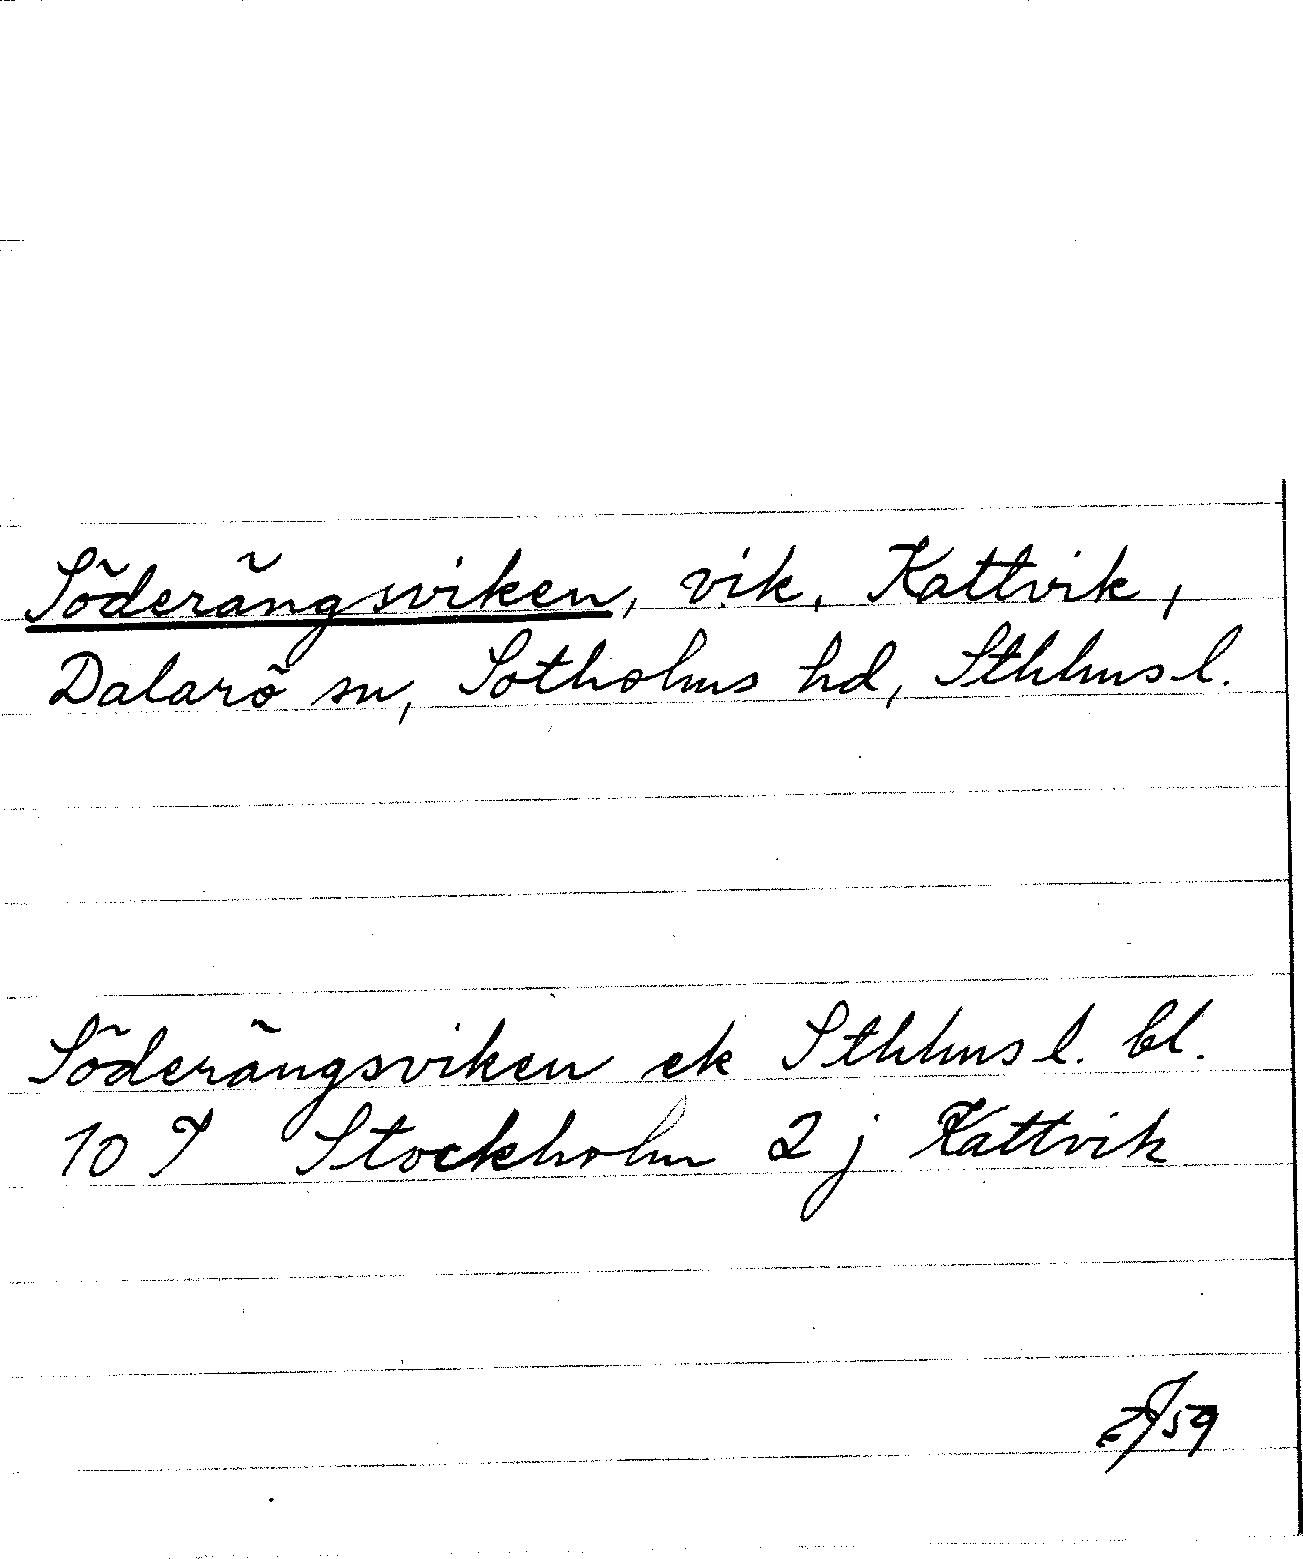 Söderängsviken, vik, Kattvik,
Dalarö sn, Sotholms hd, Sthlms l.
Söderängsviken ek Sthlms l. bl.
Stockholm 2 j Kattvik